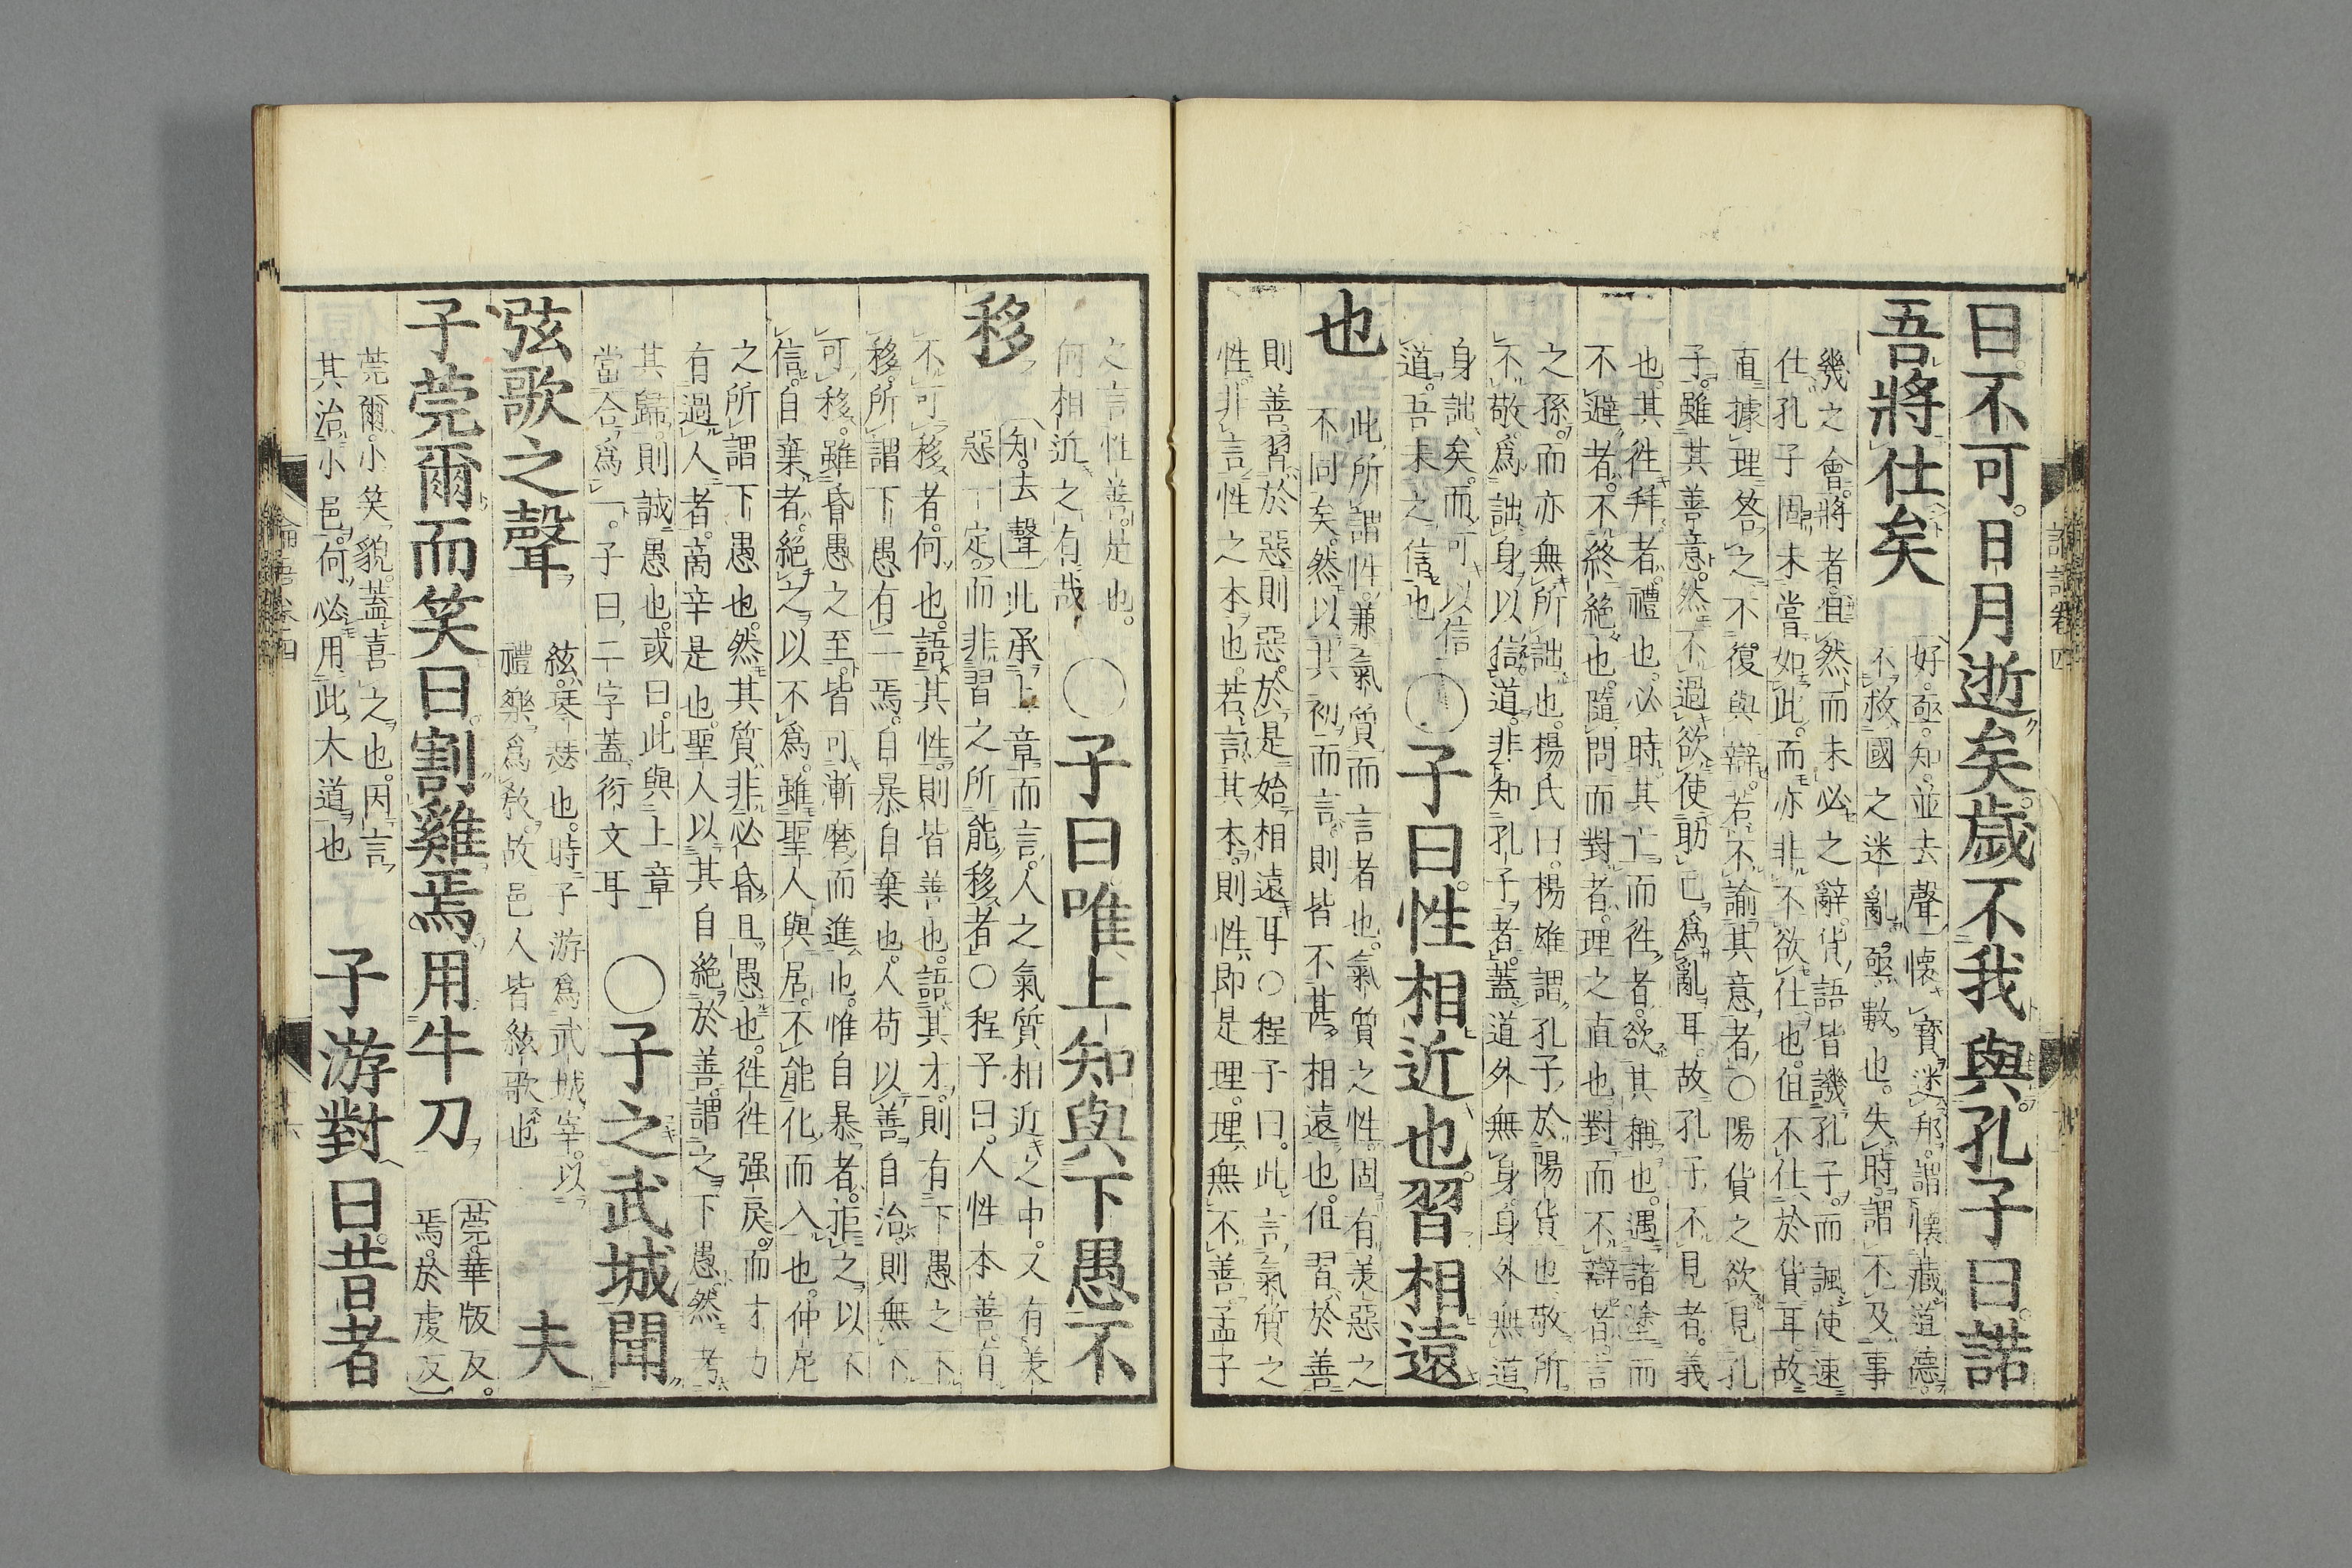 曰不可。日月逝矣。歲不我與。孔子曰。諾
吾將仕矣
好。亟。知。並去聲懷寶迷邦。謂懷藏道德。
不救國之迷亂。亟。數也。失時。謂不及事
幾之會。將者。且然而未必之辭。貨語皆譏孔子。而諷使速
仕。孔子固未嘗如此。而亦非不欲仕也。但不仕於貨耳。故
直據理答之。不復與辯。若不諭其意者。○陽貨之欲見孔
子。雖其善意。然不過欲使助己爲亂耳。故孔子不見者。義
也。其往拜者。禮也。必時其亡而往者。欲其稱也。遇諸塗而
不避者。不終絶也。隨問而對者。理之直也。對而不辯者。言
之孫。而亦無所詘也。楊氏曰。楊雄謂孔子於陽貨也敬所
不敬。爲詘身以信道。非知孔子者。蓋道外無身。身外無道。
身詘矣。而可以信
道。吾未之信也
○子曰。性相近也。習相遠
也
此所謂性。兼氣質而言者也。氣質之性。固有美惡之
不同矣。然以其初而言。則皆不甚相遠也。但習於善
則善。習於惡則惡。於是始相遠耳○程子曰。此言氣質之
性。非言性之本也。若言其本。則性即是理。理無不善。孟子
之言性善。是也。
何相近之有哉
○子曰唯上知與下愚不
移
知。去聲此承上章而言。人之氣質相近之中。又有美
惡一定。而非習之所能移者○程子曰。人性本善。有
不可移者。何也。語其性。則皆善也。語其才。則有下愚之不
移。所謂下愚有二焉。自暴自棄也。人苟以善自治。則無不
可移。雖昏愚之至。皆可漸磨而進也。惟自暴者。拒之以不
信。自棄者。絶之以不爲。雖聖人與居。不能化而入也。仲尼
之所謂下愚也。然其質非必昏且愚也。往往强戾。而才力
有過人者。商辛是也。聖人以其自絶於善。謂之下愚。然考
其歸。則誠愚也。或曰。此與上章
當合爲一。子曰二字蓋衍文耳
○子之武城聞
弦歌之聲
絃。琴瑟也。時子游爲武城宰。以
禮樂爲教。故邑人皆絃歌也
夫
子莞爾而笑曰。割雞焉用牛刀
莞。華版反。
焉。於虔反
莞爾。小笑貌。蓋喜之也。因言
其治小邑。何必用此大道也
子游對曰。昔者
論語卷四
論語卷四
六